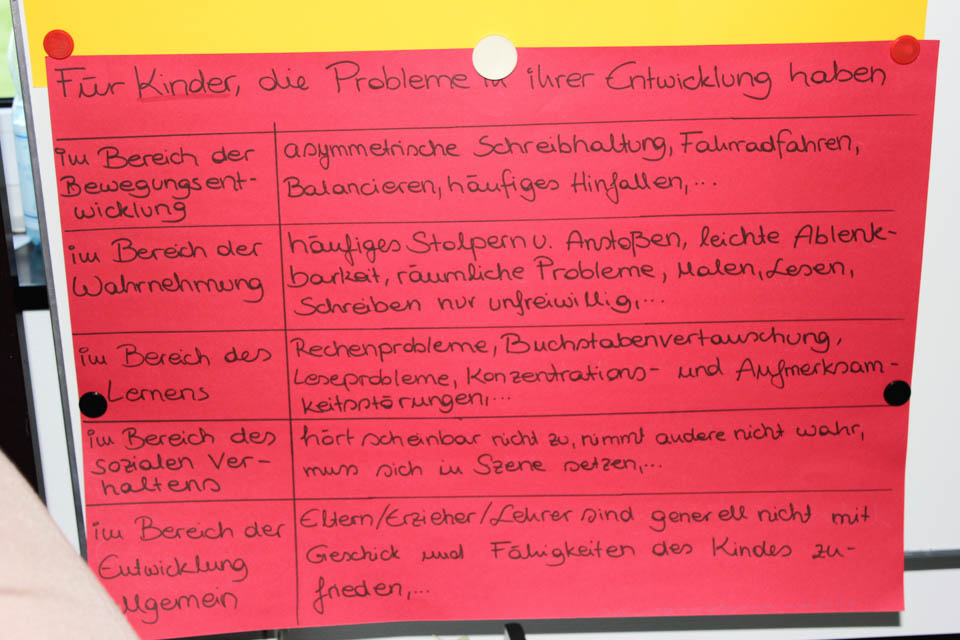 Für Kinder, die Probleme in ihrer Entwicklung haben
im Bereich der
Bewegungsent-
wicklung
asymmetrische Schreibhaltung, Fahrradfahren,
Balancieren, häufiges Hinfallen,...
im Bereich der
Wahrnehmung
häufiges Stolpern u. Anstoßen, leichte Ablenk-
barkeit, räumliche Probleme, Malen, Lesen,
Schreiben nur unfreiwillig,...
im Bereich des
Lernens
Rechenprobleme, Buchstabenvertauschung,
Leseprobleme, Konzentrations- und Aufmerksam-
keitsstörungen,...
im Bereich des
sozialen Ver-
haltens
hört scheinbar nicht zu, nimmt andere nicht wahr,
muss sich in Szene setzen,...
im Bereich der
Entwicklung
llgemein
Eltern/Erzieher/Lehrer sind generell nicht mit
Geschick und Fähigkeiten des Kindes zu-
frieden,...